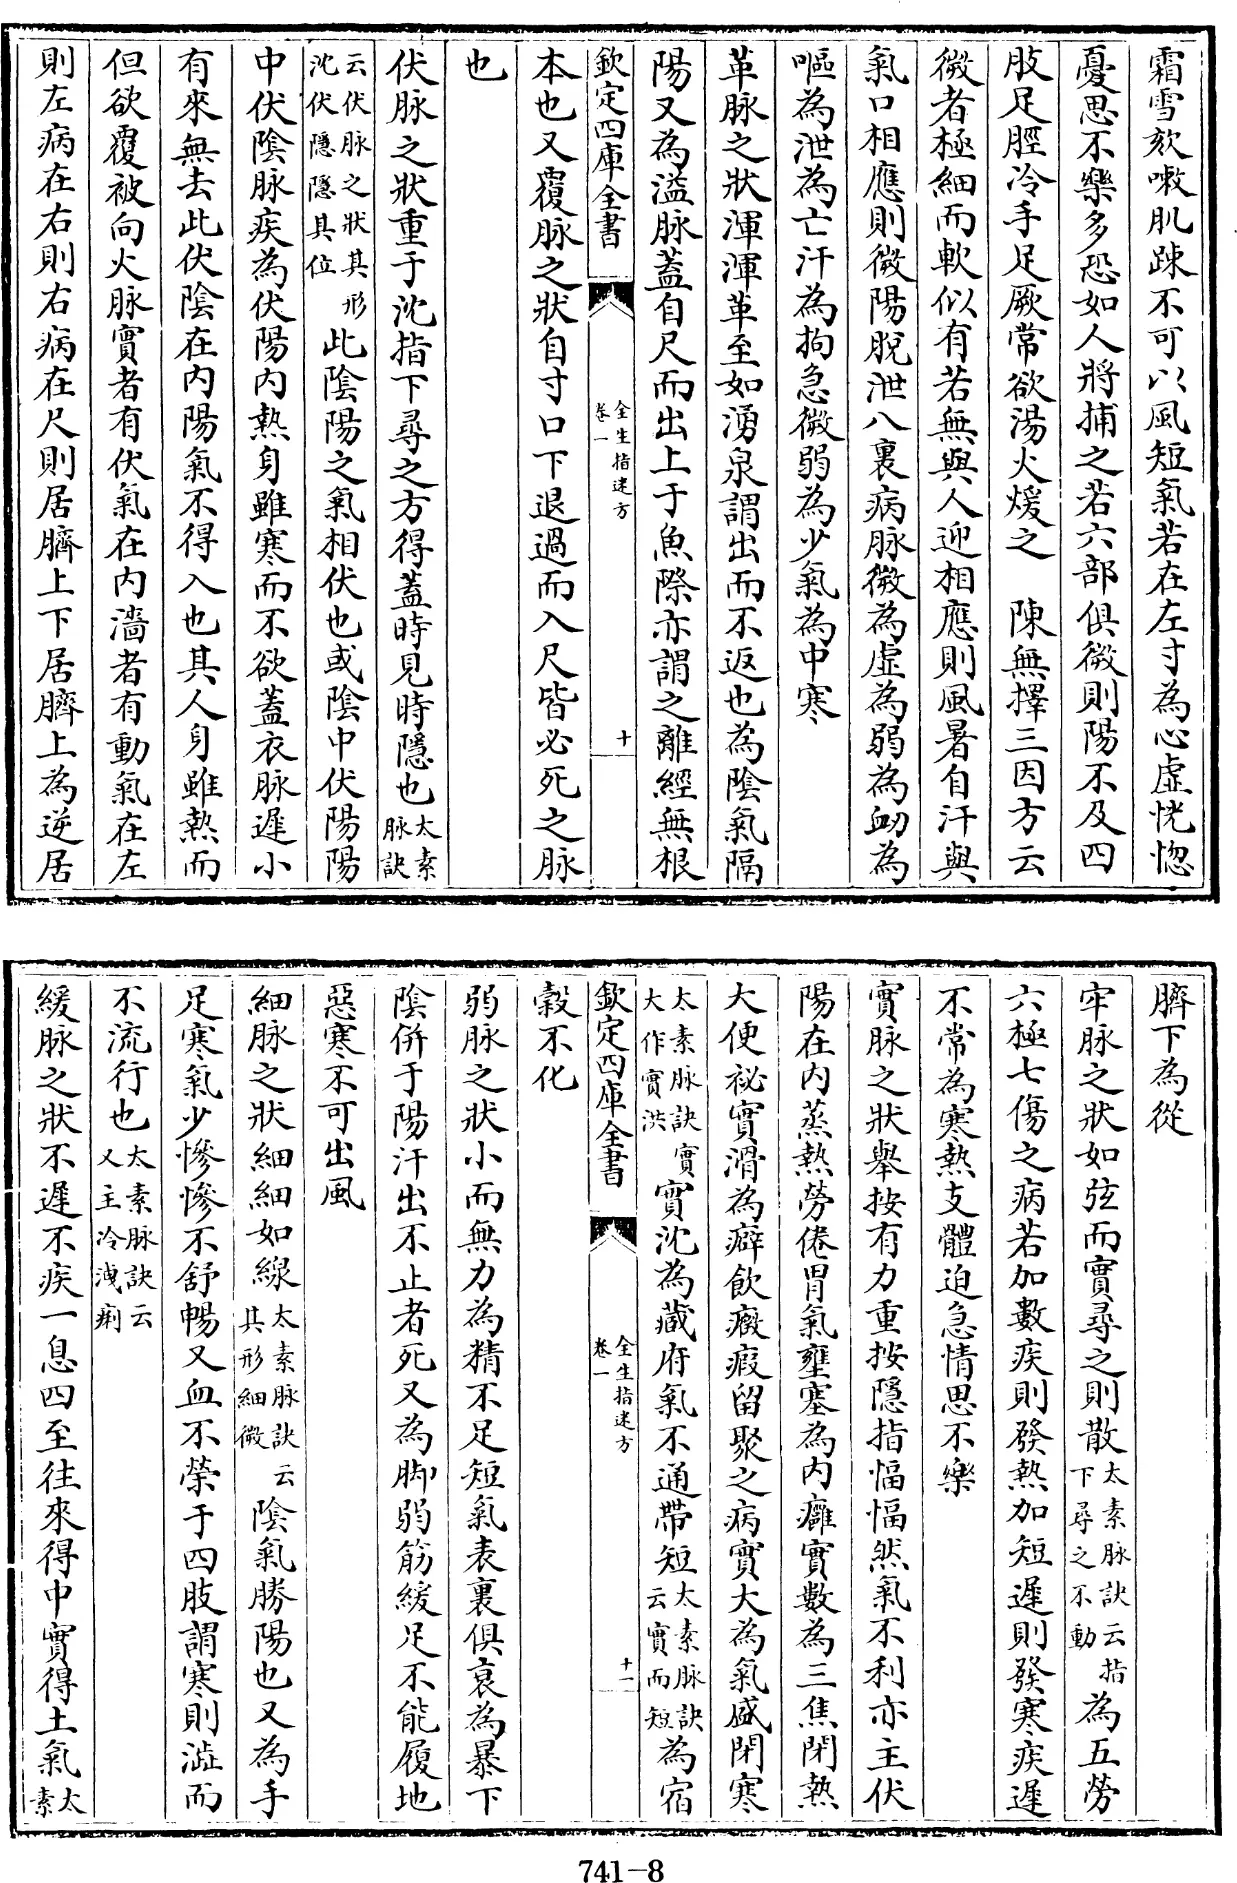 霜雪欬嗽肌疎不可以風短氣若在左寸為心虛恍惚
憂思不樂多恐如人將捕之若六部俱微則陽不及四
肢足脛冷手足厥常欲湯火煖之　陳無擇三因方云
微者極細而軟似有若無與人迎相應則風暑自汗與
氣口相應則微陽脫泄入裏病脉微為虛為弱為衂為
嘔為泄為亡汗為拘急微弱為少氣為中寒
革脉之狀渾渾革至如湧泉謂出而不返也為陰氣隔
陽又為溢脉蓋自尺而出上于魚際亦謂之離經無根
欽定四庫全書
全生指迷方
卷一
十
本也又覆脉之狀自寸口下退過而入尺皆必死之脉
也
伏脉之狀重于沈指下尋之方得蓋時見時隱也太素脉訣
云伏脉之狀其形沈伏隱隱其位此陰陽之氣相伏也或陰中伏陽陽
中伏陰脉疾為伏陽內熱身雖寒而不欲蓋衣脉遲小
有來無去此伏陰在內陽氣不得入也其人身雖熱而
但欲覆被向火脉實者有伏氣在內濇者有動氣在左
則左病在右則右病在尺則居臍上下居臍上為逆居
臍下為從
牢脉之狀如弦而實尋之則散太素脉訣云指下尋之不動為五勞
六極七傷之病若加數疾則發熱加短遲則發寒疾遲
不常為寒熱支體迫急情思不樂
實脉之狀舉按有力重按隱指愊愊然氣不利亦主伏
陽在內蒸熱勞倦胃氣壅塞為內癰實數為三焦閉熱
大便祕實滑為癖飲癥瘕留聚之病實大為氣盛閉寒
太素脉訣實大作實洪實沈為藏府氣不通帶短太素脉訣云實而短為宿
欽定四庫全書
全生指迷方
卷一
十一
穀不化
弱脉之狀小而無力為精不足短氣表裏俱衰為暴下
陰併于陽汗出不止者死又為脚弱筋緩足不能履地
惡寒不可出風
細脉之狀細細如線太素脉訣云其形細微陰氣勝陽也又為手
足寒氣少慘慘不舒暢又血不榮于四肢謂寒則澁而
不流行也太素脉訣云又主冷洩痢
緩脉之狀不遲不疾一息四至往來得中實得土氣太素
741-8